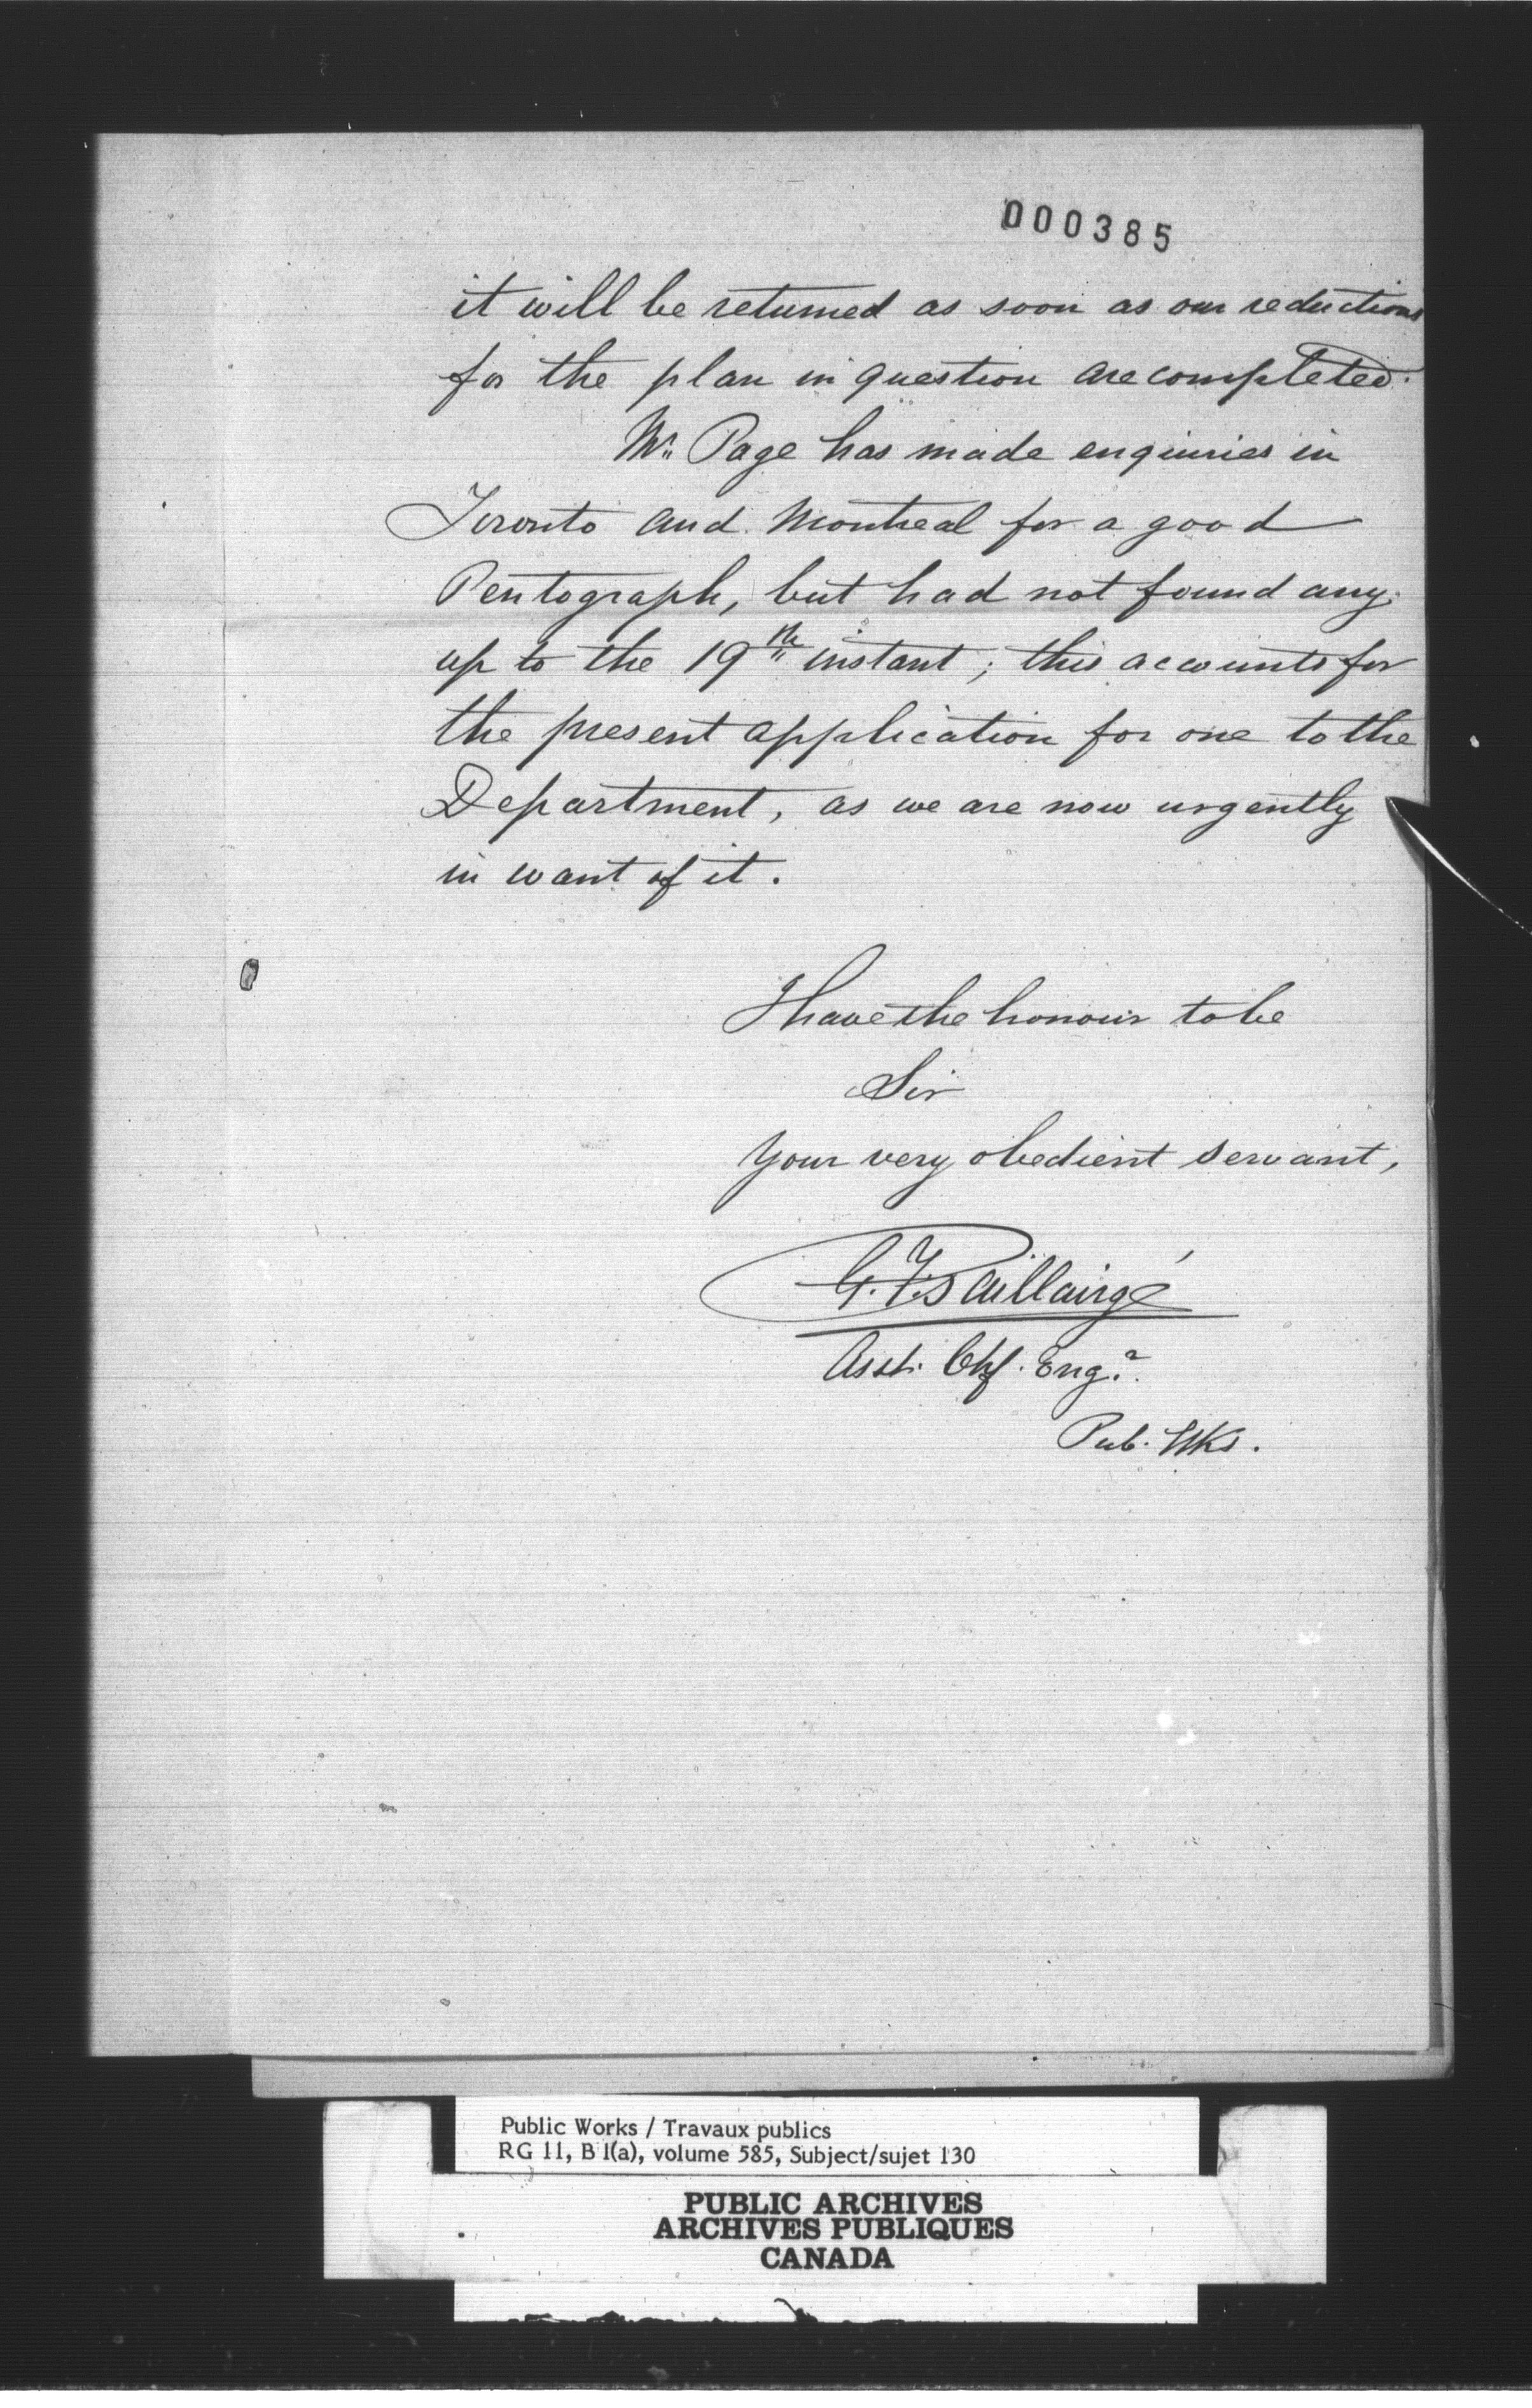 000385
it will be returned as soon as our reductions
for the plan in question are completed.
Mr. Page has made enquiries in
Toronto and Montreal for a good
Pentograph, but had not found any
up to the 19th instant; this accounts for
the present application for one to the
Department, as we are now urgently
in want of it.
I have the honour to be
Sir
Your very obedient servant,
G. F. Baillairgé
Asst. Chf. Engr.
Pub. Wks.
Public Works / Travaux publics
RG 11, B 1(a), volume 585, Subject/sujet 130
PUBLIC ARCHIVES
ARCHIVES PUBLIQUES
CANADA